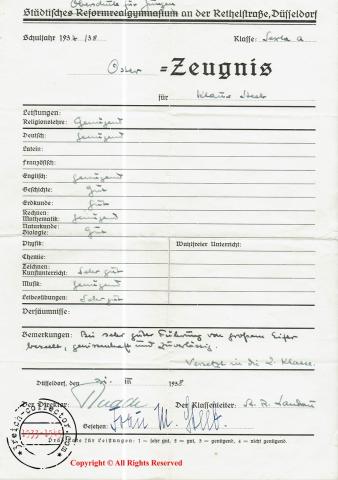 Oberschule für Jungen
Städtisches Reformrealgymnasium an der Rethelstraße, Düsseldorf
Schuljahr 1937/38 Klasse: Sexta a
Oster =Zeugnis
für Klaus
Leistungen:
Religionslehre: Genügend
Deutsch: Genügend
Latein:
Französisch:
Englisch: Genügend
Geschichte: Gut
Erdkunde: Gut
Rechnen Mathematik: Genügend
Naturkunde Biologie: Gut
Physik: Wahlfreier Unterricht:
Chemie:
Zeichnen Kunstunterricht: Sehr gut
Musik: Genügend
Leibesübungen: Sehr gut
Versäumnisse:
Bemerkungen: Bei sehr guter Führung von großem Eifer
beseelt, gewissenhaft und zuverlässig.
Versetzt in die 2. Klasse.
Düsseldorf, den 1938
Der Direktor: Der Klassenleiter:
Gesehen: Frau M.
Prädikate für Leistungen: 1 — sehr gut, 2 — gut, 3 — genügend, 4 — nicht genügend.
3reich-collector.com
1933-1945
Copyright © All Rights Reserved